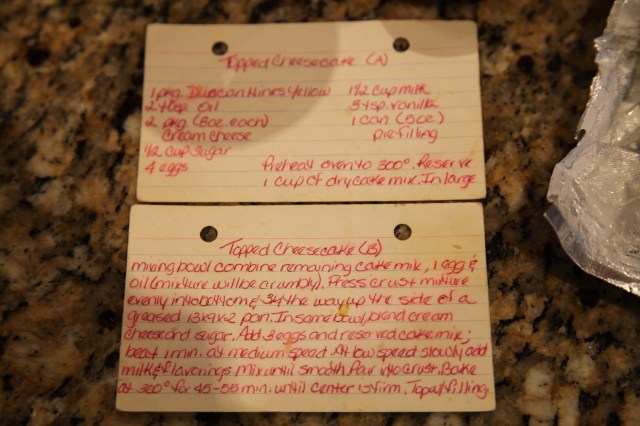 Topped Cheesecake (A)
1 pkg. Duncan Hines Yellow
2 tbsp. Oil
2 pkg (8oz. each)
Cream Cheese
1/2 cup sugar
4 eggs
1 1/2 cup milk
3 tsp. vanilla
1 can
pie filling
Preheat oven to 300°. Reserve
1 cup of dry cake mix. In large
Topped Cheesecake (B)
mixing bowl combine remaining cake mix, 1 egg &
oil (mixture will be crumbly). Press crust mixture
evenly into bottom & 3/4 the way up the side of a
greased 13x9x2 pan. In same bowl, blend cream
cheese and sugar. Add 3 eggs and reserved cake mix;
beat 1 min. at medium speed. At low speed slowly add
milk & flavorings. Mix until smooth. Pour into crust. Bake
at 300° for 45-55 min. until center is firm. Top w/ filling